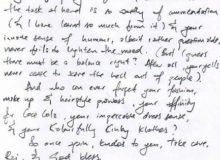 the task at hand is so worthy of commendation
(& I have learnt so much from it) & your
sense of humour, albeit rather questionable,
never fails to lighten the mood. (But I guess
there must be a balance right? After all your jells
never cease to leave the best out of people)
And who can ever forget your fashion,
make up & hairstyle your affinity
Coca Cola, your impeccable dress sense,
& your Kinky Klothes?
So once again, kudos to you, take care
God bless